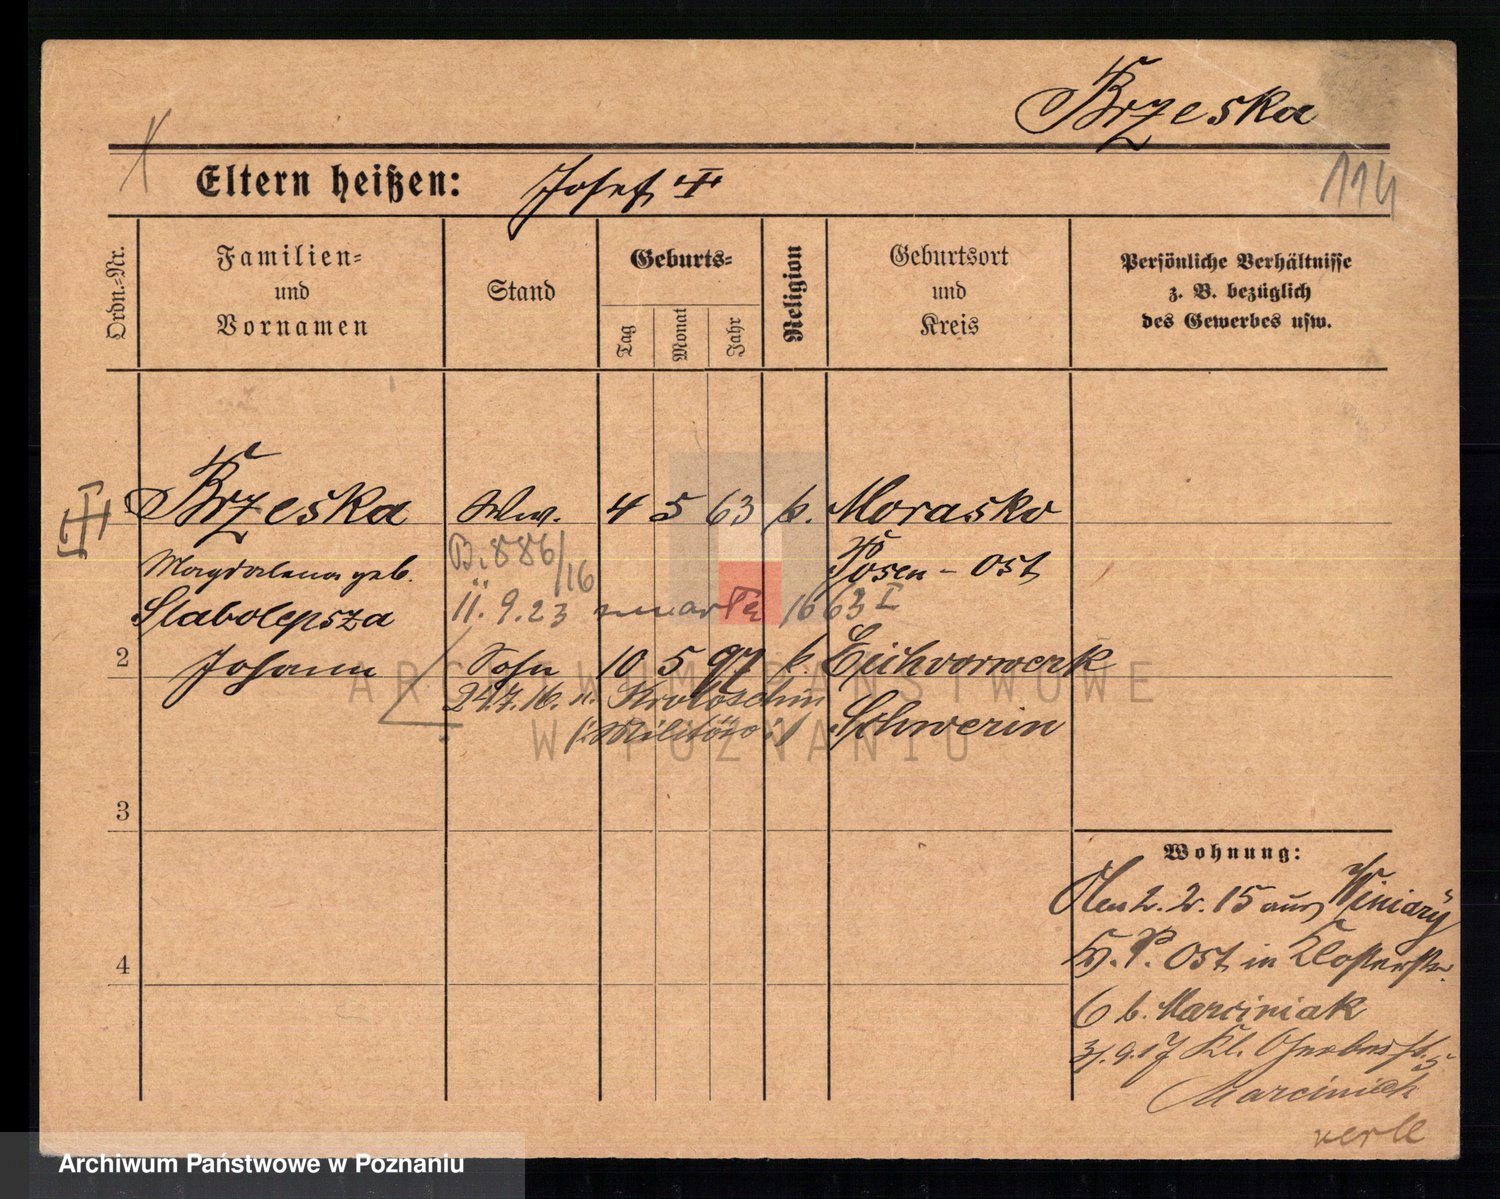 Brzeska
Eltern heißen: Josef
114
Ordn.-Nr.
Familien-
und
Vornamen
Stand
Geburts-
Tag
Monat
Jahr
Religion
Geburtsort
und
Kreis
Persönliche Verhältnisse
z. B. bezüglich
des Gewerbes usw.
Brzeska Ww. 4 5 63 k. Morasko
Magdalena geb. B. 886/16 Posen-Ost
Slabolepsza 11.9.23 zmarła 1663 I
2 Johann Sohn 10 5 97 k. Eichvorwerk
24.7.16. n. Krotoschin
(: Militär :) Schwerin
3
Wohnung:
2. 2. 15 aus Winiary
4
Kr. P. Ost in Klosterstr.
6 b. Marciniak
31.9.17 Kl. Gerberstr. 5
Marciniak
ARCHIWUM PAŃSTWOWE
W POZNANIU
Archiwum Państwowe w Poznaniu